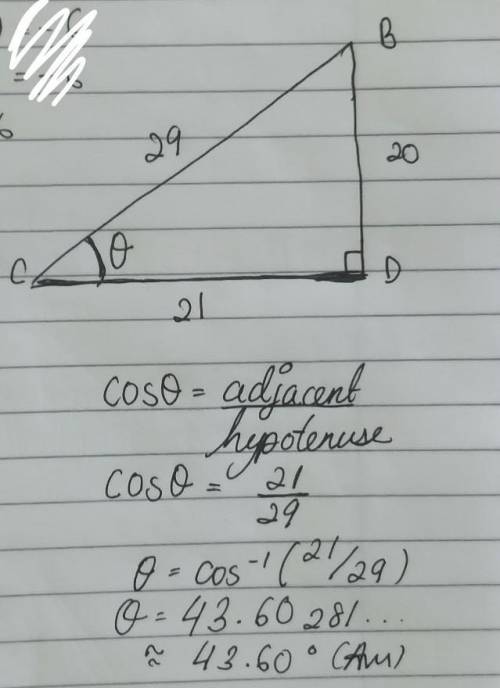 B
29
20
C
θ
D
21
cosθ = adjacent
hypotenuse
cosθ = 21
29
θ = cos⁻¹(21/29)
θ = 43.60281...
≈ 43.60° (Ans)